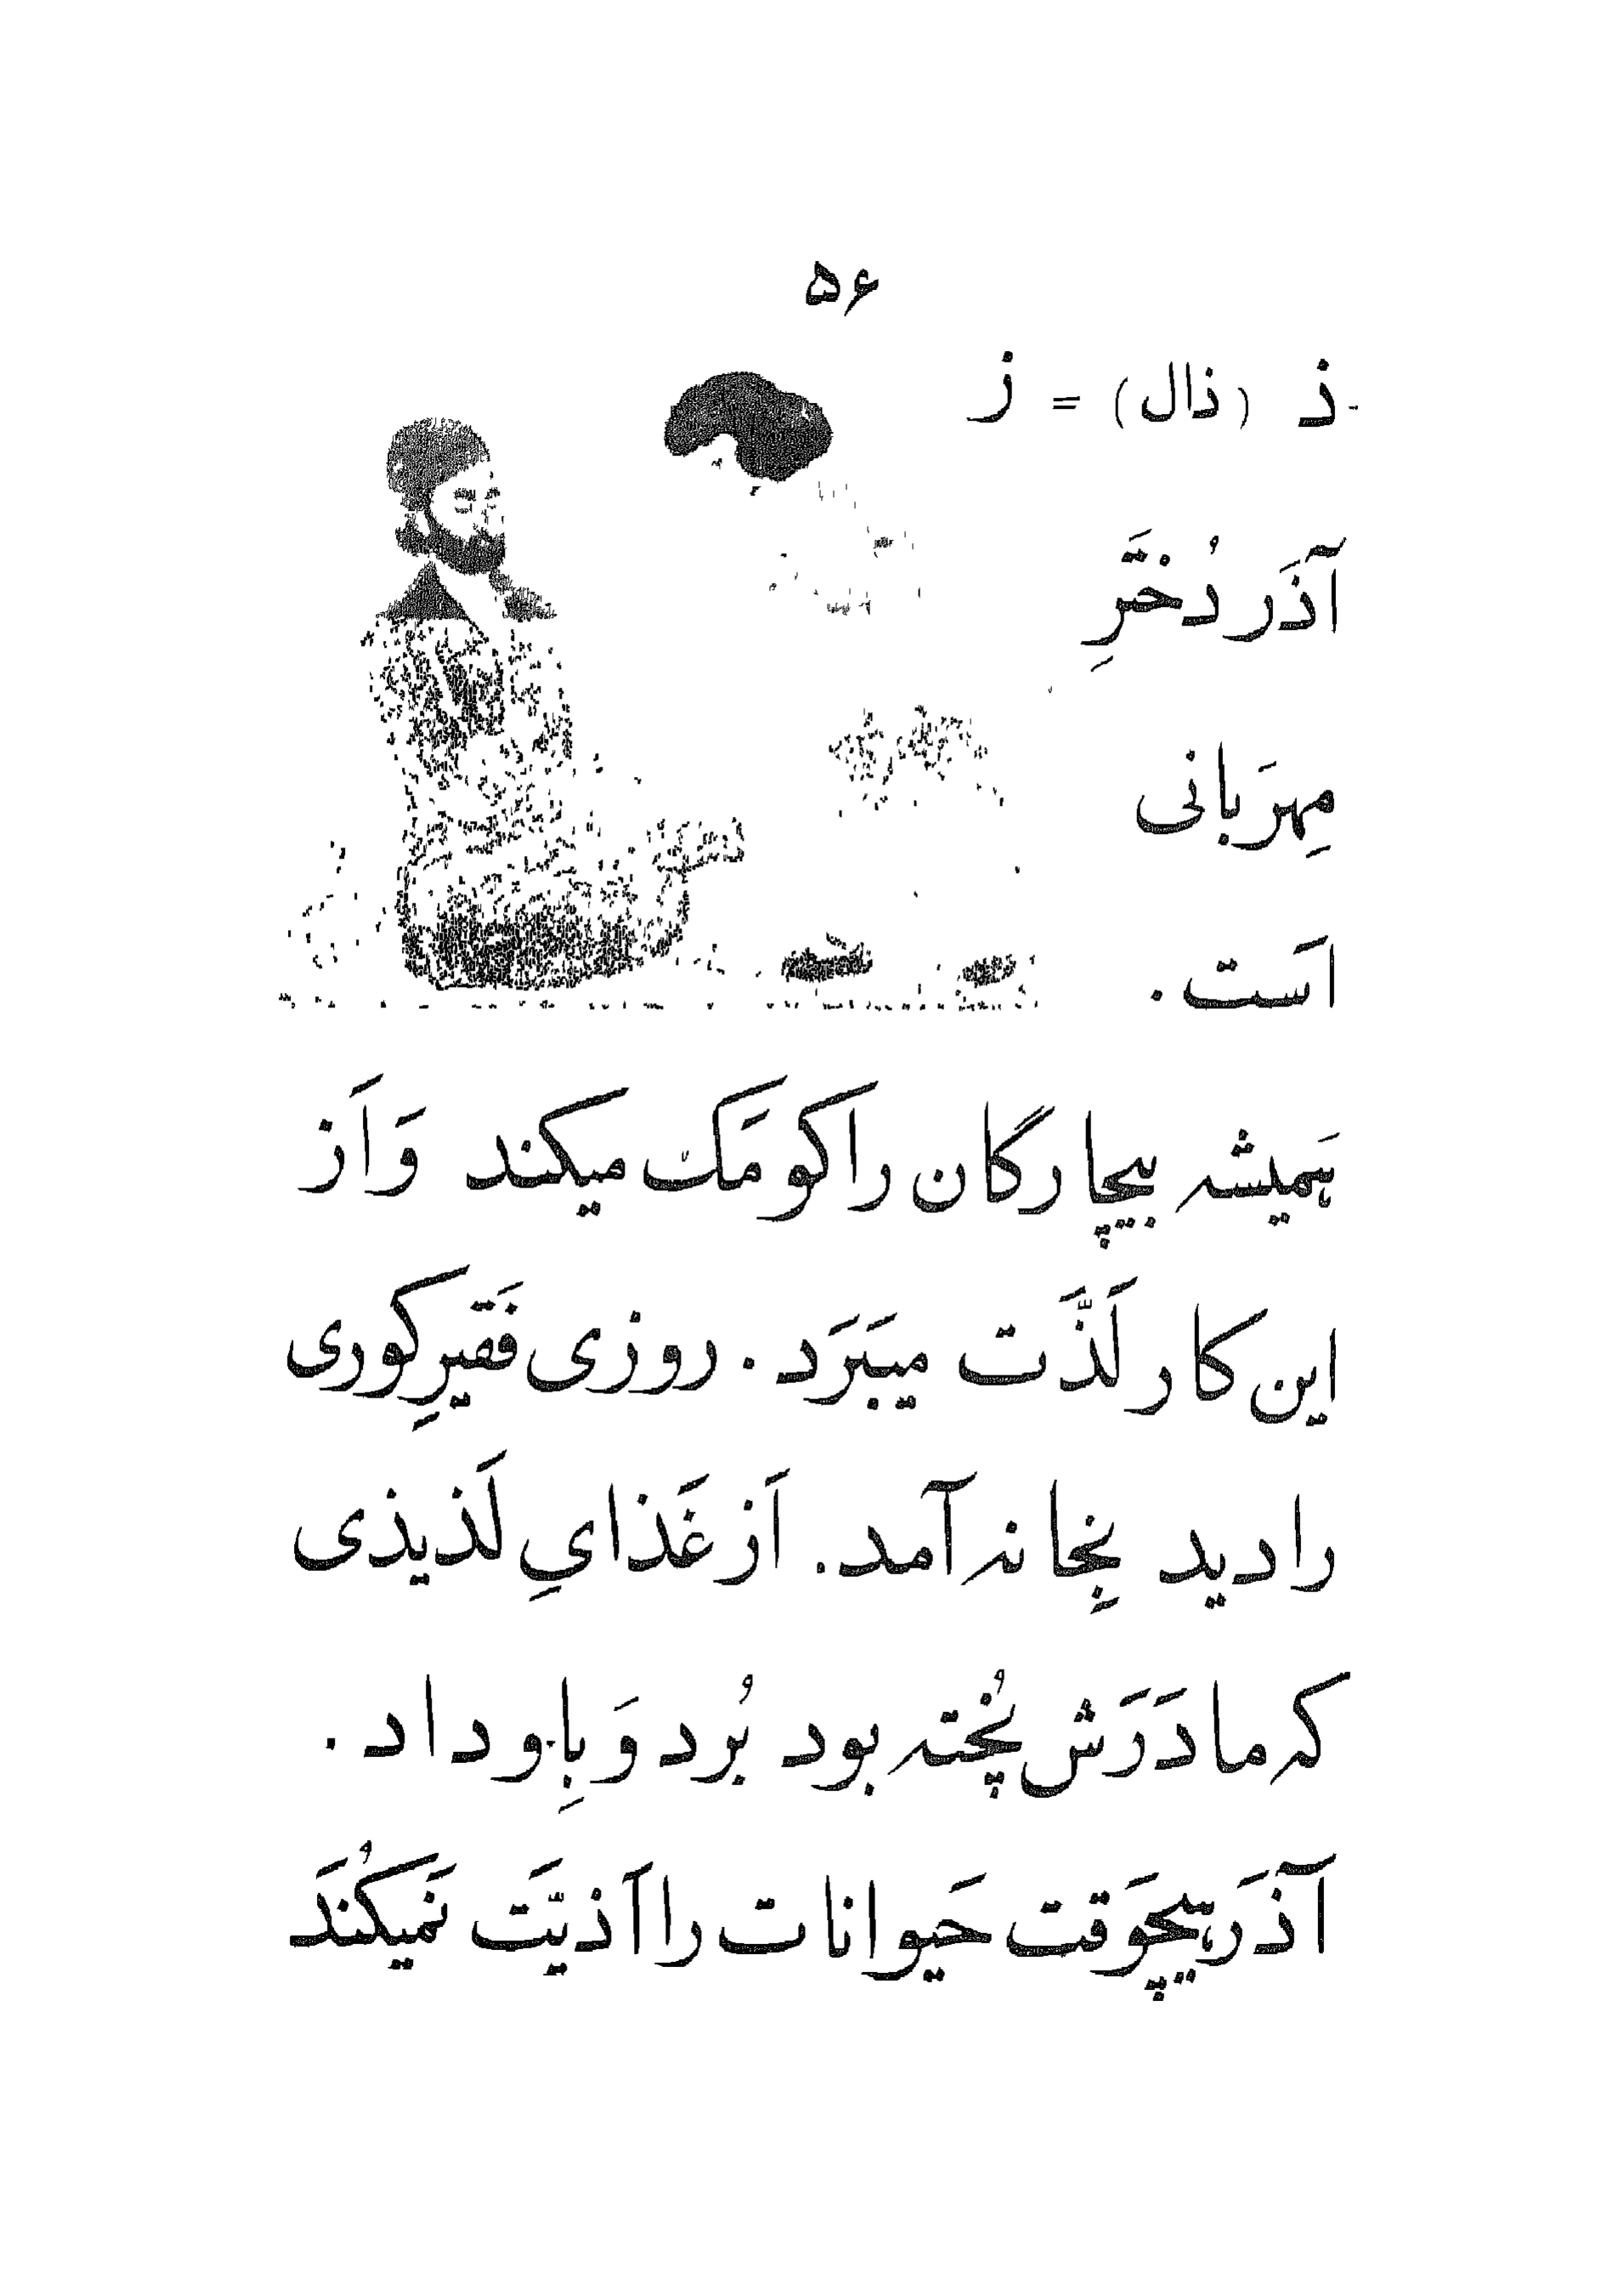 ۵۶
ذ (ذال) = ز
آذَر دُختَرِ
مِهرَبانی
اَست .
هَمیشه بیچارگان را کومَک میکند وَ اَز
این کار لَذَّت میبَرَد . روزی فَقیرِ کوری
را دید بِخانه آمد . اَز غَذایِ لَذیذی
که مادَرَش پُخته بود بُرد وَ بِاو داد .
آذَر هیچوَقت حَیوانات را اَذیَّت نَمیکُنَد